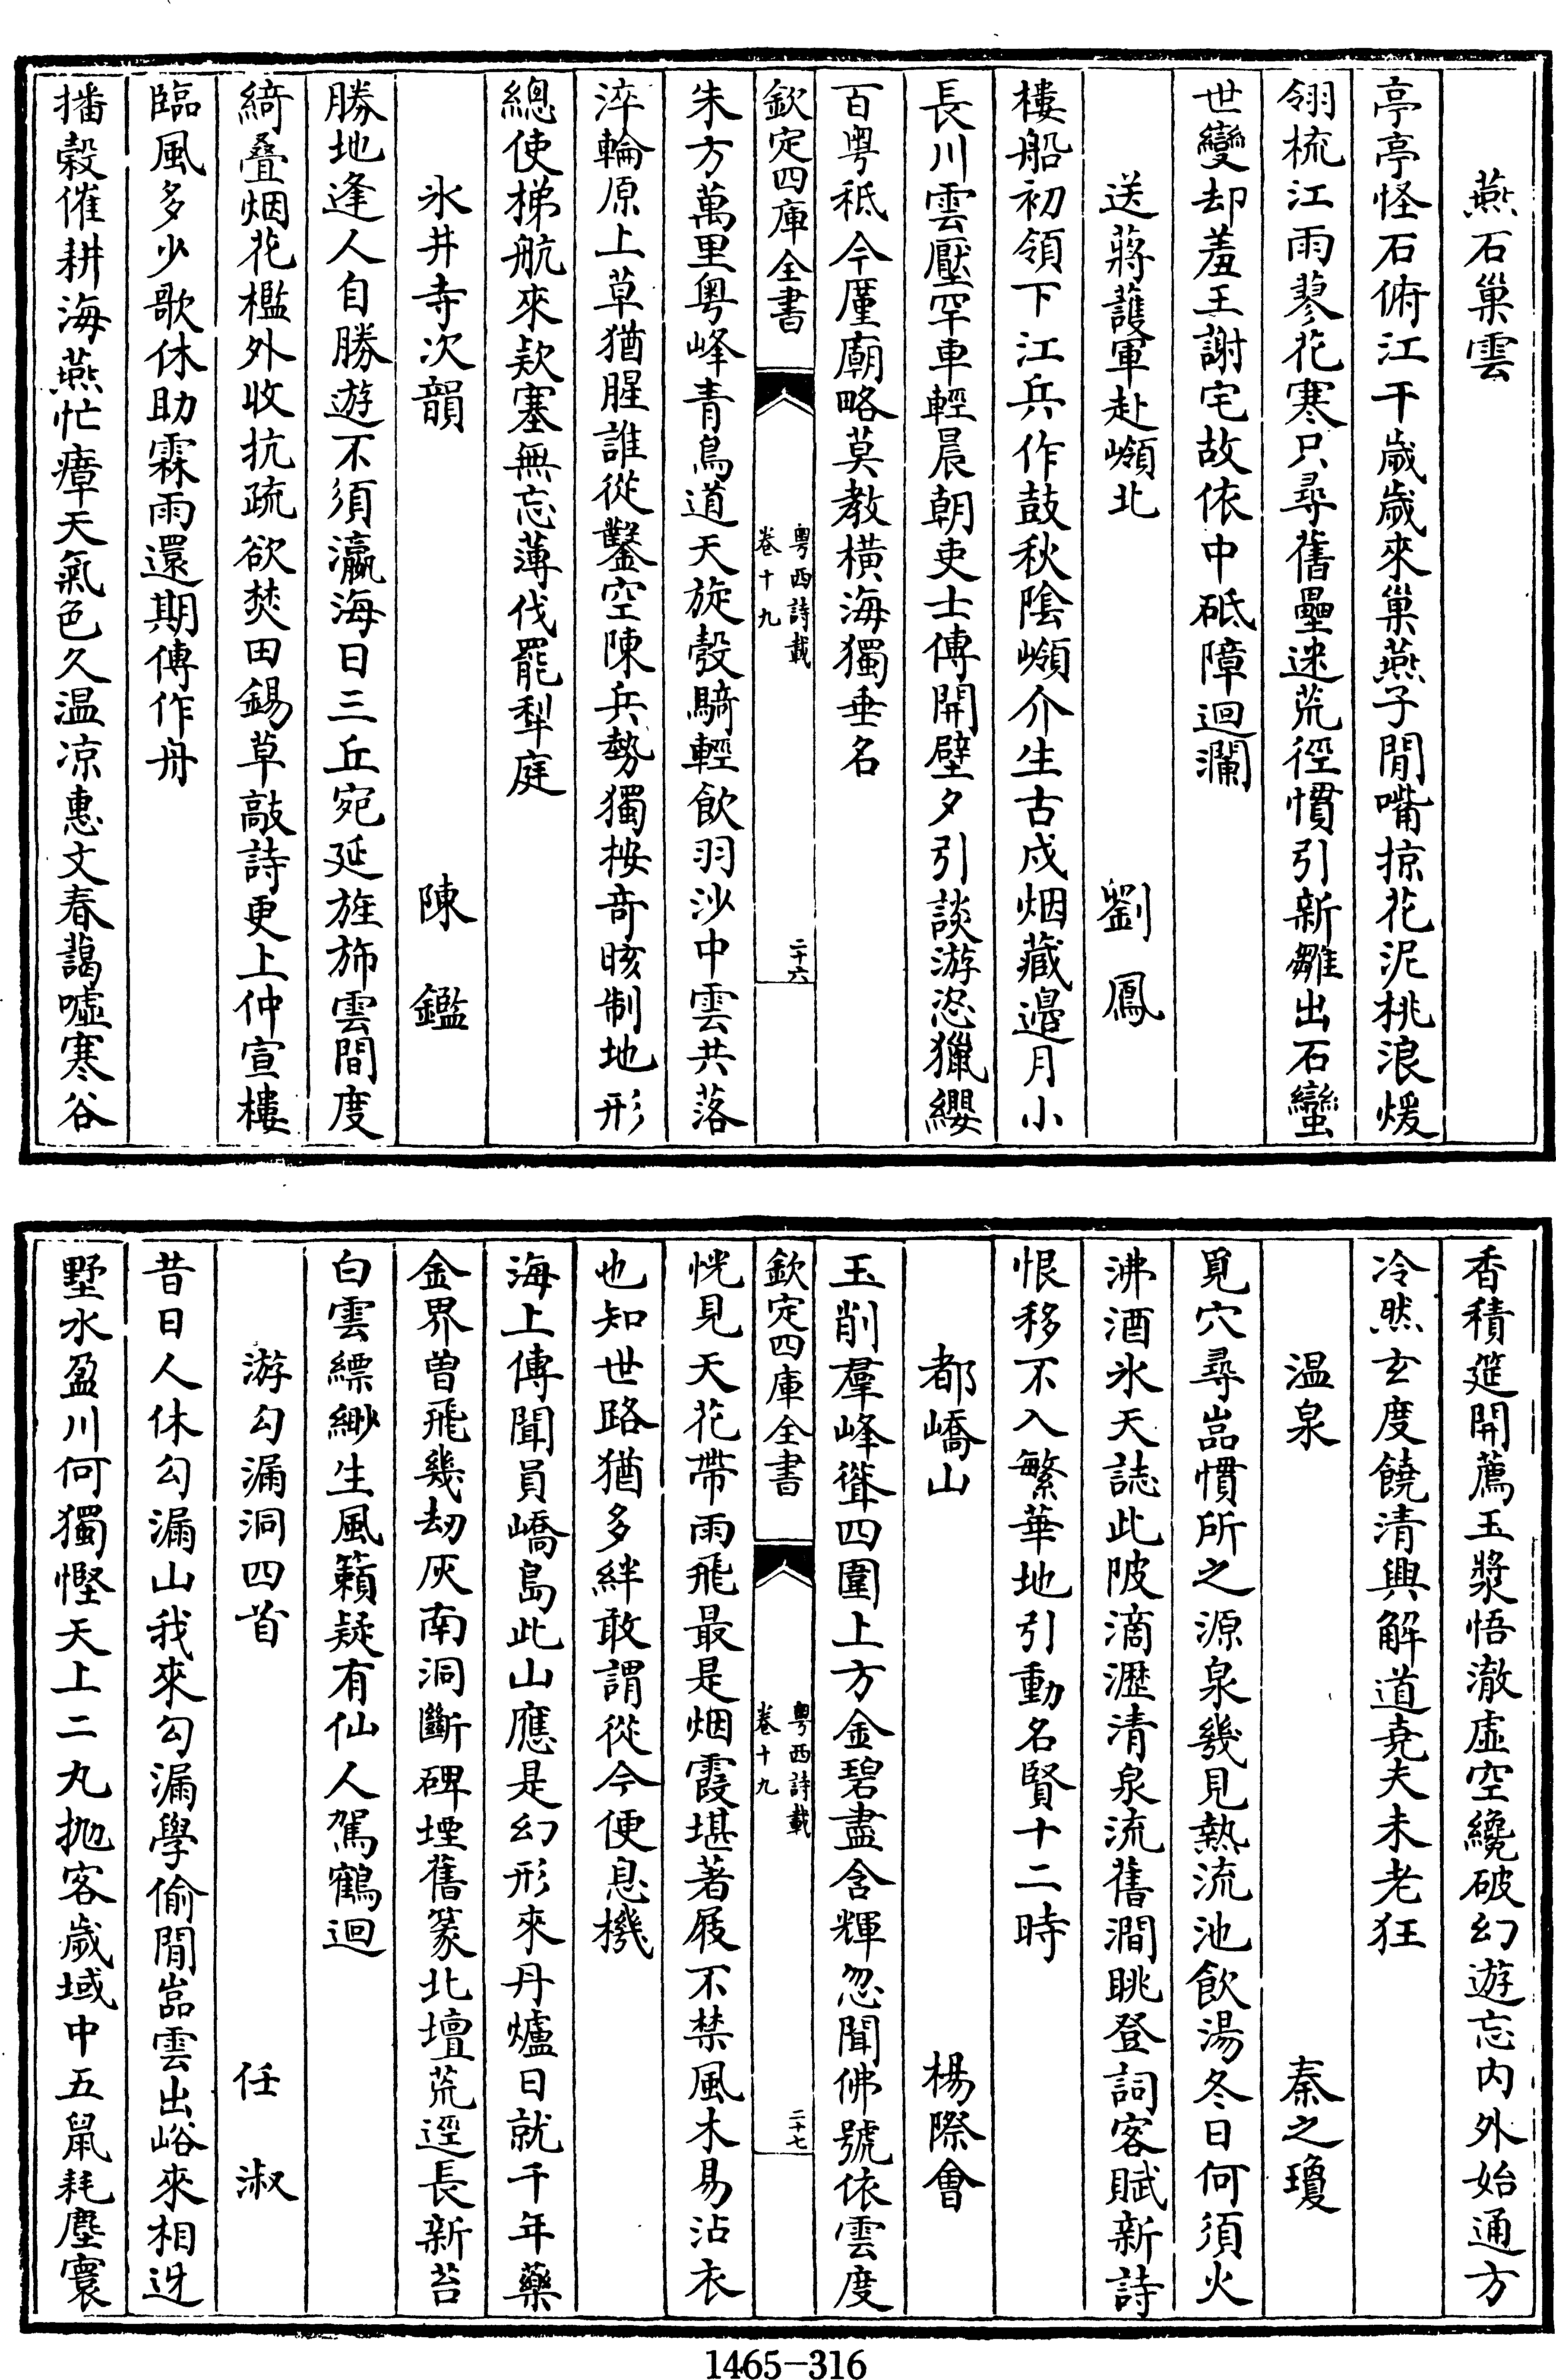 燕石巢雲
亭亭怪石俯江干歲歲來巢燕子閒嘴掠花泥桃浪煖
翎梳江雨蓼花寒只尋舊壘迷荒徑慣引新雛出石蠻
世變却羞王謝宅故依中砥障迴瀾
送蔣護軍赴嶺北 劉鳳
樓船初領下江兵作鼓秋陰嶺介生古戍烟藏邉月小
長川雲壓罕車輕晨朝吏士傳開壁夕引談游恣獵纓
百粤秪今厪廟略莫教橫海獨垂名
欽定四庫全書 粤西詩載 卷十九 二十六
朱方萬里粤峰青鳥道天旋彀騎輕飲羽沙中雲共落
淬輪原上草猶腥誰從鑿空陳兵勢獨按奇㑎制地形
總使梯航來欵塞無忘薄伐罷犁庭
氷井寺次韻 陳鑑
勝地逢人自勝遊不須瀛海日三丘宛延旌斾雲間度
綺疊烟花檻外收抗疏欲焚田錫草敲詩更上仲宣樓
臨風多少歌休助霖雨還期傅作舟
播穀催耕海燕忙瘴天氣色久温凉惠文春藹噓寒谷
香積筵開薦玉漿悟澈虚空纔破幻遊忘内外始通方
冷然玄度饒清興解道堯夫未老狂
温泉 秦之瓊
覓穴尋嵓慣所之源泉幾見熱流池飲湯冬日何須火
沸酒氷天誌此陂滴瀝清泉流舊澗眺登詞客賦新詩
恨移不入繁華地引動名賢十二時
都嶠山 楊際會
玉削羣峰聳四圍上方金碧盡含輝忽聞佛號依雲度
欽定四庫全書 粤西詩載 卷十九 二十七
恍見天花帶雨飛最是烟霞堪著屐不禁風木易沾衣
也知世路猶多絆敢謂從今便息機
海上傳聞員嶠島此山應是幻形來丹爐日就千年藥
金界曽飛幾刼灰南洞斷碑堙舊篆北壇荒逕長新苔
白雲縹緲生風籟疑有仙人駕鶴迴
游勾漏洞四首 任淑
昔日人休勾漏山我來勾漏學偷閒嵓雲出峪來相迓
墅水盈川何獨慳天上二丸抛客歲域中五鼠耗塵寰
1465-316